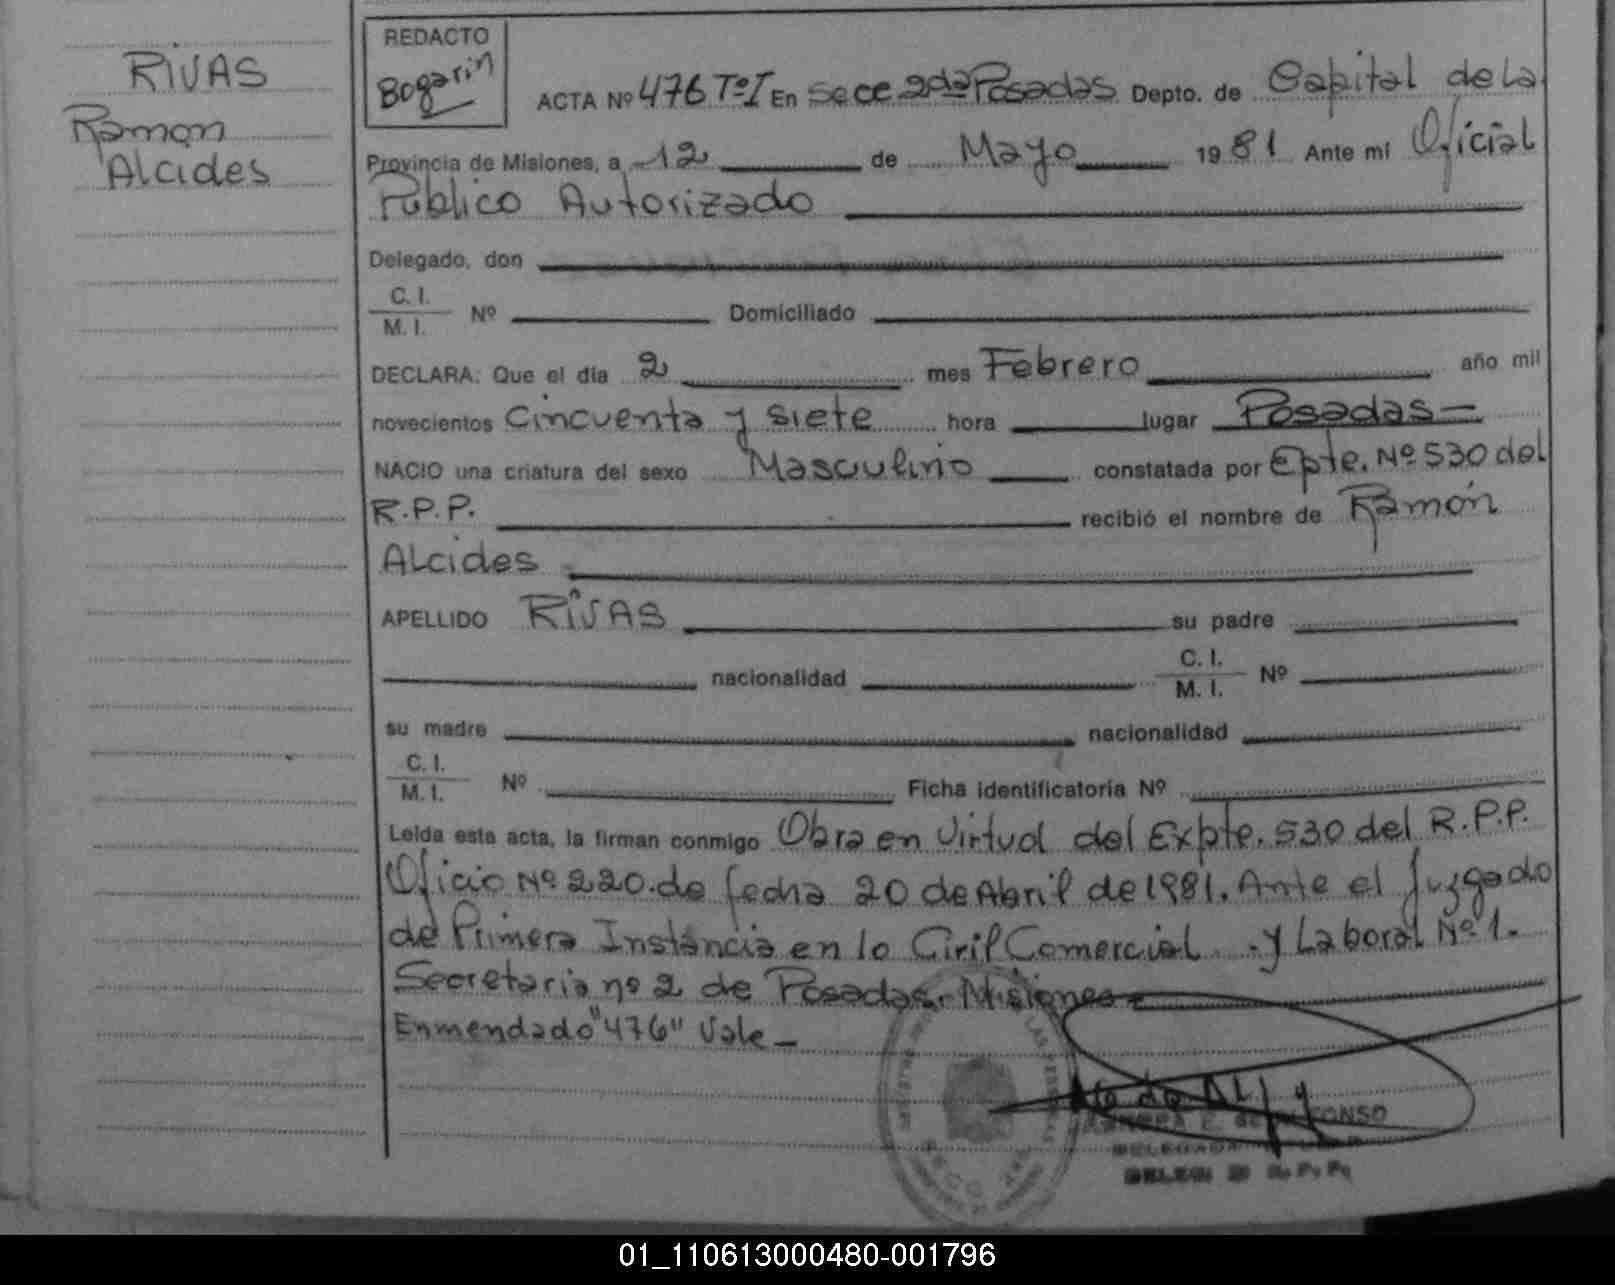 RIVAS
Ramon
Alcides
REDACTO
Bogarin
ACTA Nº 476 Tº I En Secc 2da Posadas Depto. de Capital de la
Provincia de Misiones, a 12 de Mayo 1981 Ante mi Oficial
Público Autorizado
Delegado, don
C. I.
M. I. Nº Domiciliado
DECLARA: Que el día 2 mes Febrero año mil
novecientos Cincuenta y siete hora lugar Posadas—
NACIO una criatura del sexo Masculino constatada por Epte. Nº 530 del
R.P.P. recibió el nombre de Ramón
Alcides
APELLIDO RIVAS su padre
nacionalidad C. I.
M. I. Nº
su madre nacionalidad
C. I.
M. I. Nº Ficha identificatoria Nº
Leida esta acta, la firman conmigo Obra en Virtud del Expte. 530 del R.P.P.
Oficio Nº 220. de fecha 20 de Abril de 1981. Ante el Juzgado
de Primera Instancia en lo Civil Comercial y Laboral Nº 1.
Secretaria nº 2 de Posadas. Misiones
Enmendado "476" Vale —
DELEGADA
DELEG. R. P. P.
01_110613000480-001796